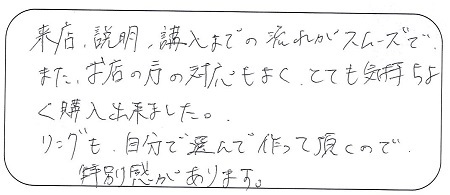 来店、説明、購入までの流れがスムーズで、
また、お店の方の対応もよく、とても気持ちよ
く購入出来ました。
リングも、自分で選んで作って頂くので、
特別感があります。